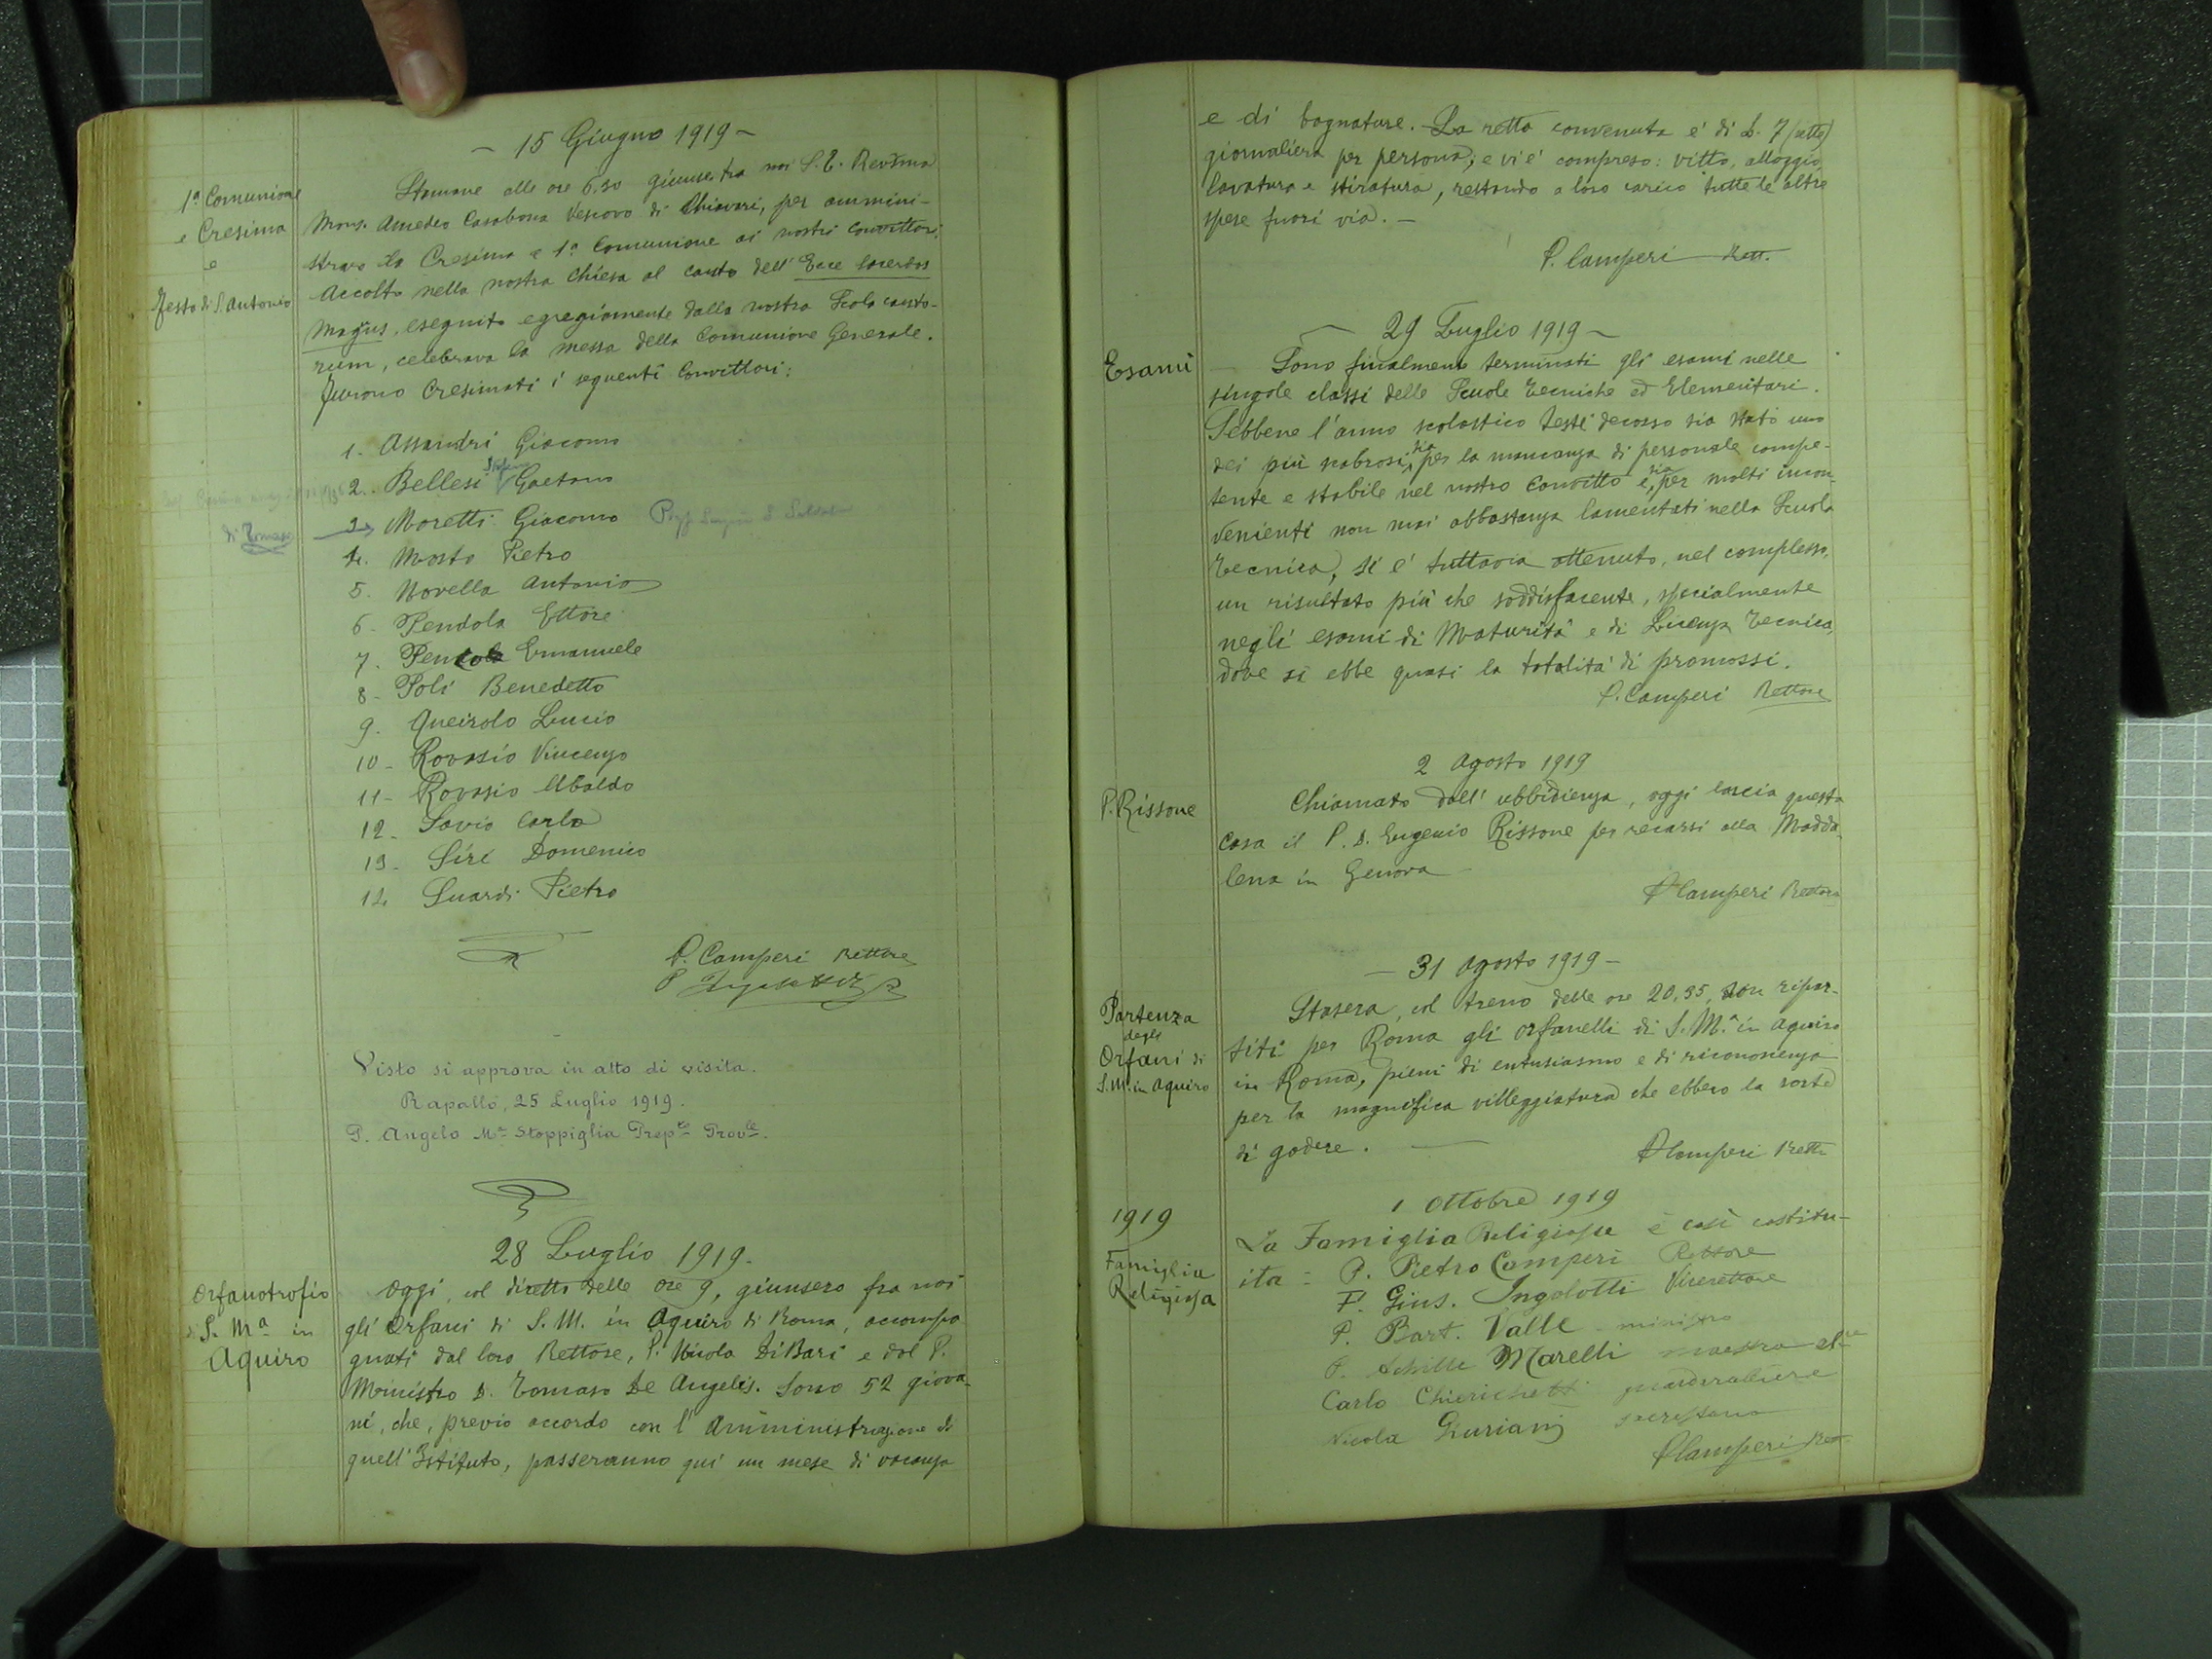 - 15 Giugno 1919 -
1ª Comunione
e Cresima
e
Festa di S. Antonio
Stamane alle ore 6.30 giunse tra noi S. E. Rev.ma
Mons. Amedeo Casabona Vescovo di Chiavari, per ammini-
strare la Cresima e 1ª Comunione ai nostri Convittori.
Accolto nella nostra Chiesa al canto dell' Ecce Sacerdos
Magnus, eseguito egregiamente dalla nostra Scola canto-
rum, celebrava la messa della Comunione Generale.
Furono Cresimati i seguenti Convittori:
1. Assandri Giacomo
2. Bellesi Stefano Gaetano
di Tomaso
3. Moretti Giacomo
4. Mosto Pietro
5. Novella Antonio
6. Pendola Ettore
7. Pendola Emanuele
8. Poli Benedetto
9. Queirolo Lucio
10 - Rovasio Vincenzo
11 - Rovasio Ubaldo
12 - Savio Carlo
13 - Siri Domenico
14 Suardi Pietro
P. Camperi Rettore
P.
Visto si approva in atto di visita.
Rapallo, 25 Luglio 1919.
P. Angelo Mª Stoppiglia Prepto Provle.
28 Luglio 1919.
Orfanotrofio
di S. Mª in
Aquiro
Oggi, col diretto delle ore 9, giunsero fra noi
gli Orfani di S. M. in Aquiro di Roma, accompa
gnati dal loro Rettore, P. Nicola Di Bari e dal P.
Ministro D. Tomaso De Angelis. Sono 52 giova-
ni, che, previo accordo con l' Amministrazione di
quell' Istituto, passeranno qui un mese di vacanza
e di bagnature. La retta convenuta è di L. 7 (sette)
giornaliera per persona; e vi è compreso: vitto, alloggio
lavatura e stiratura, restando a loro carico tutte le altre
spese fuori via. -
P. Camperi Rett.
- 29 Luglio 1919 -
Esami
Sono finalmente terminati gli esami nelle
singole classi delle Scuole Tecniche ed Elementari.
Sebbene l'anno scolastico testé decorso sia stato uno
dei più scabrosi, sia per la mancanza di personale compe-
tente e stabile nel nostro Convitto e, sia per molti incon-
venienti non mai abbastanza lamentati nella Scuola
Tecnica, si è tuttavia ottenuto, nel complesso,
un risultato più che soddisfacente, specialmente
negli esami di Maturità e di Licenza Tecnica,
dove si ebbe quasi la totalità di promossi.
P. Camperi Rettore
2 Agosto 1919
P. Rissone
Chiamato dall' ubbidienza, oggi lascia questa
casa il P. D. Eugenio Rissone per recarsi alla Madda-
lena in Genova
P Camperi Rettore
- 31 Agosto 1919 -
Partenza
degli
Orfani di
S. M. in Aquiro
Stasera, col treno delle ore 20,35, son ripar-
titi per Roma gli orfanelli di S. M.ª in Aquiro
in Roma, pieni di entusiasmo e di riconoscenza
per la magnifica villeggiatura che ebbero la sorte
di godere.
P Camperi Rett
1 Ottobre 1919
1919
Famiglia
Religiosa
La Famiglia Religiosa è così costitu-
ita = P. Pietro Camperi Rettore
P. Gius. Ingolotti Vicerettore
P. Bart. Valle - ministro
P. Achille Marelli maestro el.re
Carlo Chierichetti guardarobiere
Nicola Luriani sacrestano
P Camperi Rett.